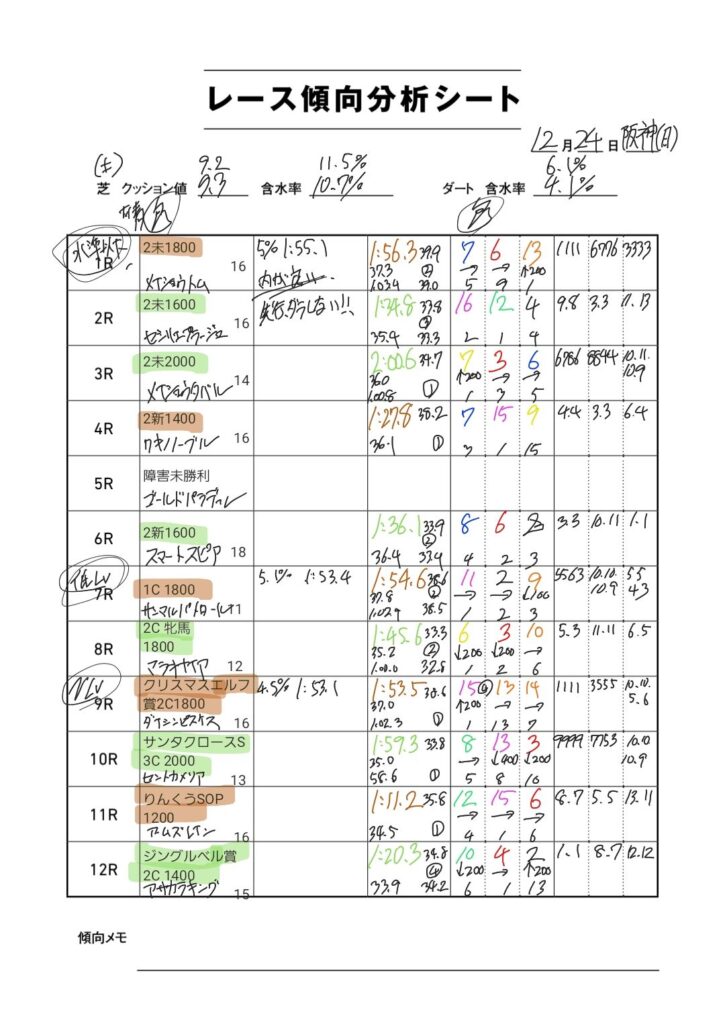 レース傾向分析シート
12月24日 阪神(日)
(土) 9.2 11.5% 6.1%
芝 クッション値 9.3 含水率 10.7% ダート 含水率 4.1%
水準以下
1R 2未1800 16 5% 1:55.1 1:56.3 39.9 7 6 13 1111 6776 3333
メイショウトム 37.3 → → ↑200
1:03.4 39.0 5 9 1
2R 2未1600 16 先行、ダラしない!! 1:34.8 33.8 16 12 4 9.8 3.3 11.13
35.4 33.3 2 1 4
3R 2未2000 14 2:00.6 34.7 7 3 6 6786 8844 10.11
10.9
メイショウタバル 36.0 ↑200 → →
1:00.8 ① 1 3 5
4R 2新1400 16 1:27.8 38.2 7 15 9 4.4 3.3 6.4
ワキノノーブル 36.1 ① 3 1 15
5R 障害未勝利
6R 2新1600 18 1:36.1 33.9 8 6 2 3.3 10.11 1.1
スマートスピア 36.4 33.4 4 2 3
低Lv
7R 1C 1800 11 5.1% 1:53.4 1:54.6 38.6 11 2 9 5563 10.10 5.5
10.9 4.3
サンマルパトロール 37.8 → → ↓100
1:02.9 38.5 1 2 3
8R 2C 牝馬 1:45.6 33.3 6 3 10 5.3 11.11 6.5
1800 12 35.2 ② ↓200 ↓200 →
1:00.0 32.8 1 2 6
9R クリスマスエルフ 4.5% 1:53.1 1:53.5 15 13 14 1111 3555 10.10
賞2C1800 37.0 ↑200 → → 5.6
ダイシンピスケス 16 1:02.3 ① 1 13 7
10R サンタクロースS 1:59.3 33.8 8 13 3 9999 7753 10.10
3C 2000 35.0 → 10.9
セントカメリア 13 58.6 ① 5 8 10
11R りんくうSOP 1:11.2 35.8 12 15 6 8.7 5.5 13.11
1200 → → →
16 34.5 ① 4 1 6
12R ジングルベル賞 1:20.3 34.8 10 4 2 1.1 8.7 12.12
2C 1400 ↓200 → ↑200
アサカラキング 15 33.9 34.2 6 1 13
傾向メモ